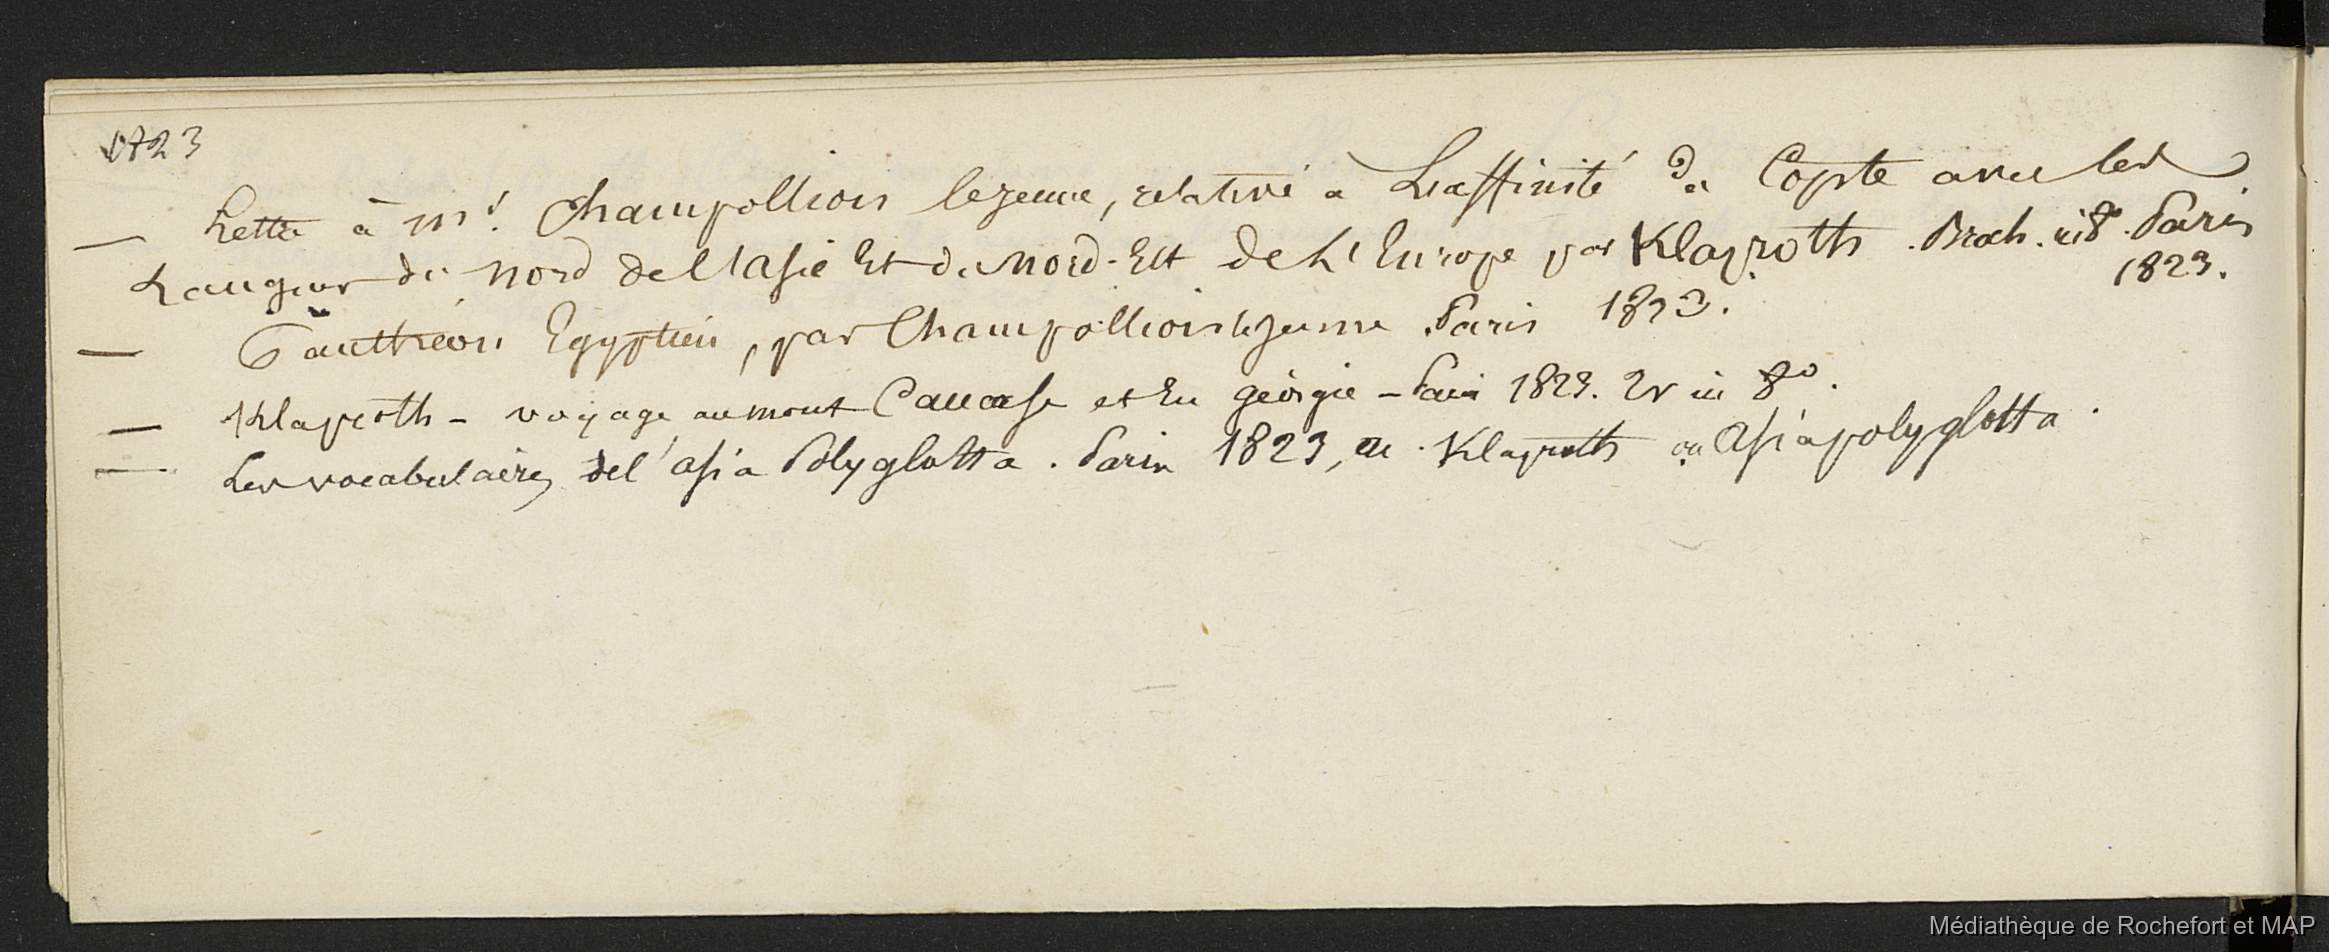 1823
— Lettre à mr. Champollion lejeune, relative à L'affinité du Copte avec les
Langues du nord de l'asie Et du Nord-Est de L'Europe par Klaproth. Broch. in 8°. Paris
1823.
— Panthéon Egyptien, par Champollion lejeune. Paris 1823.
— Klaproth - voyage au mont Caucase et En géorgie - Paris 1823. 2v in 8°.
— Les vocabulaires del'asia Polyglotta. Paris 1823, Klaproth ou Asia polyglotta.
Médiathèque de Rochefort et MAP